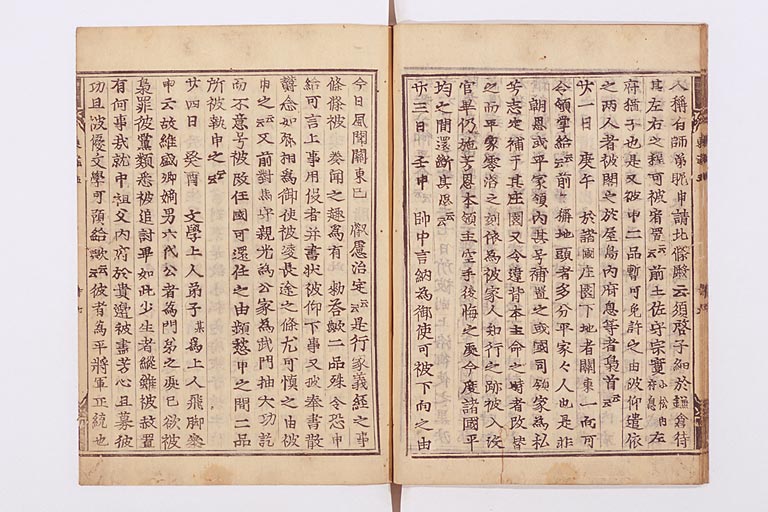 人稱有師弟眤申請此條驗云須啓子細於鎌倉待
其左右之程可被宥置云云前土佐守宗實小松内府息左
府猶子也是又被申二品暫可免許之由被仰遣依
之兩人者被閣之於屋島内府息等者梟首云云
廿一日庚午於諸國庄園下地者關東一向可
令領掌給云云前々稱地頭者多分平家々人也是非
朝恩或平家領内其号補置之或國司領家爲私
芳志定補于其庄園又令違背本主命之時者改替
之而平家零落之刻依爲被家人知行之跡被入没
官畢仍施芳恩本領主空手後悔之處今度諸國平
均之間還断其思云云
廿三日壬申帥中言納爲御使可被下向之由
今日風聞關東已叡慮治定云云是行家義經之事
條條被奏聞之趣爲有勅答歟二品殊令恐申
給可言上事用侵者并書状被仰下事又被奉書散
欝念如然相爲御使被凌長途之條尤可憚之由被
申之云云又前對馬守親光爲公家爲武門抽大功訖
而不意于被改任國可還任之由頻愁申之間二品
所被執申之云云
廿四日癸酉文學上人弟子某爲上人飛脚參
申云故維盛卿嫡男六代公者爲門弟之處已欲被
梟罪彼黨類悉被追討畢如此少生者縱雖被赦置
有何事哉就中祖父内府於貴邊被盡芳心且募彼
功且被優文學可預給歟云云彼者爲平將軍正統也